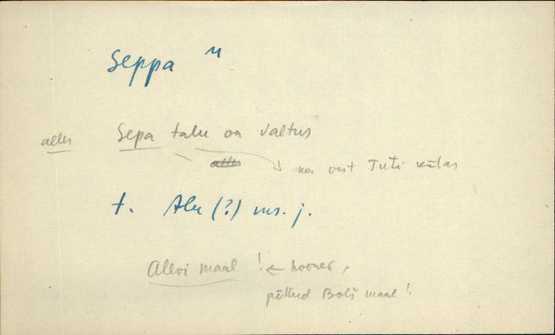 Seppa "
alles Sepa talu on Valtus
kas vist Tuti külas
t. Alu (?) vs. j.
Allvi maal ! ← hoones,
põllud Bolš maal !